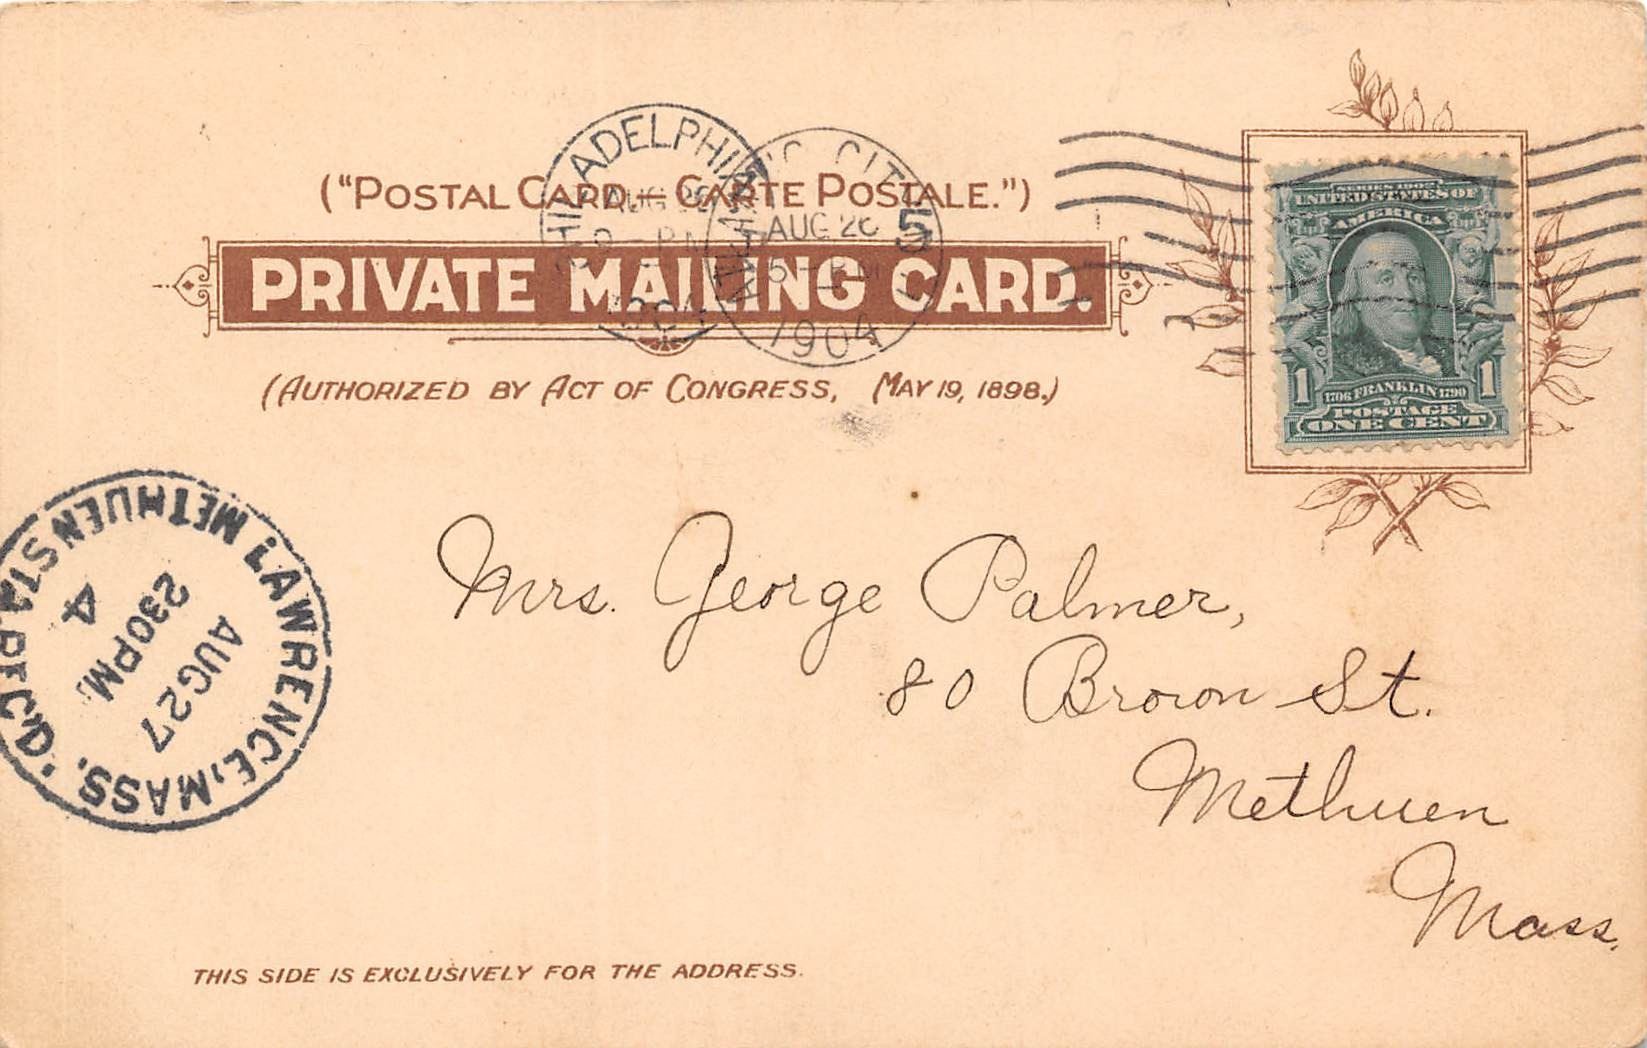 ("POSTAL CARD — CARTE POSTALE.")
PRIVATE MAILING CARD.
(AUTHORIZED BY ACT OF CONGRESS, (MAY 19, 1898.)
PHILADELPHIA
AUG 26
PM
1904
ATLANTIC CITY
AUG 26
5 - PM
1904
5
UNITED STATES OF
AMERICA
1 1706 FRANKLIN 1790 1
POSTAGE
ONE CENT
LAWRENCE, MASS. METHUEN STA. REC'D.
4
230PM
AUG 27
Mrs. George Palmer,
80 Brown St.
Methuen
Mass.
THIS SIDE IS EXCLUSIVELY FOR THE ADDRESS.